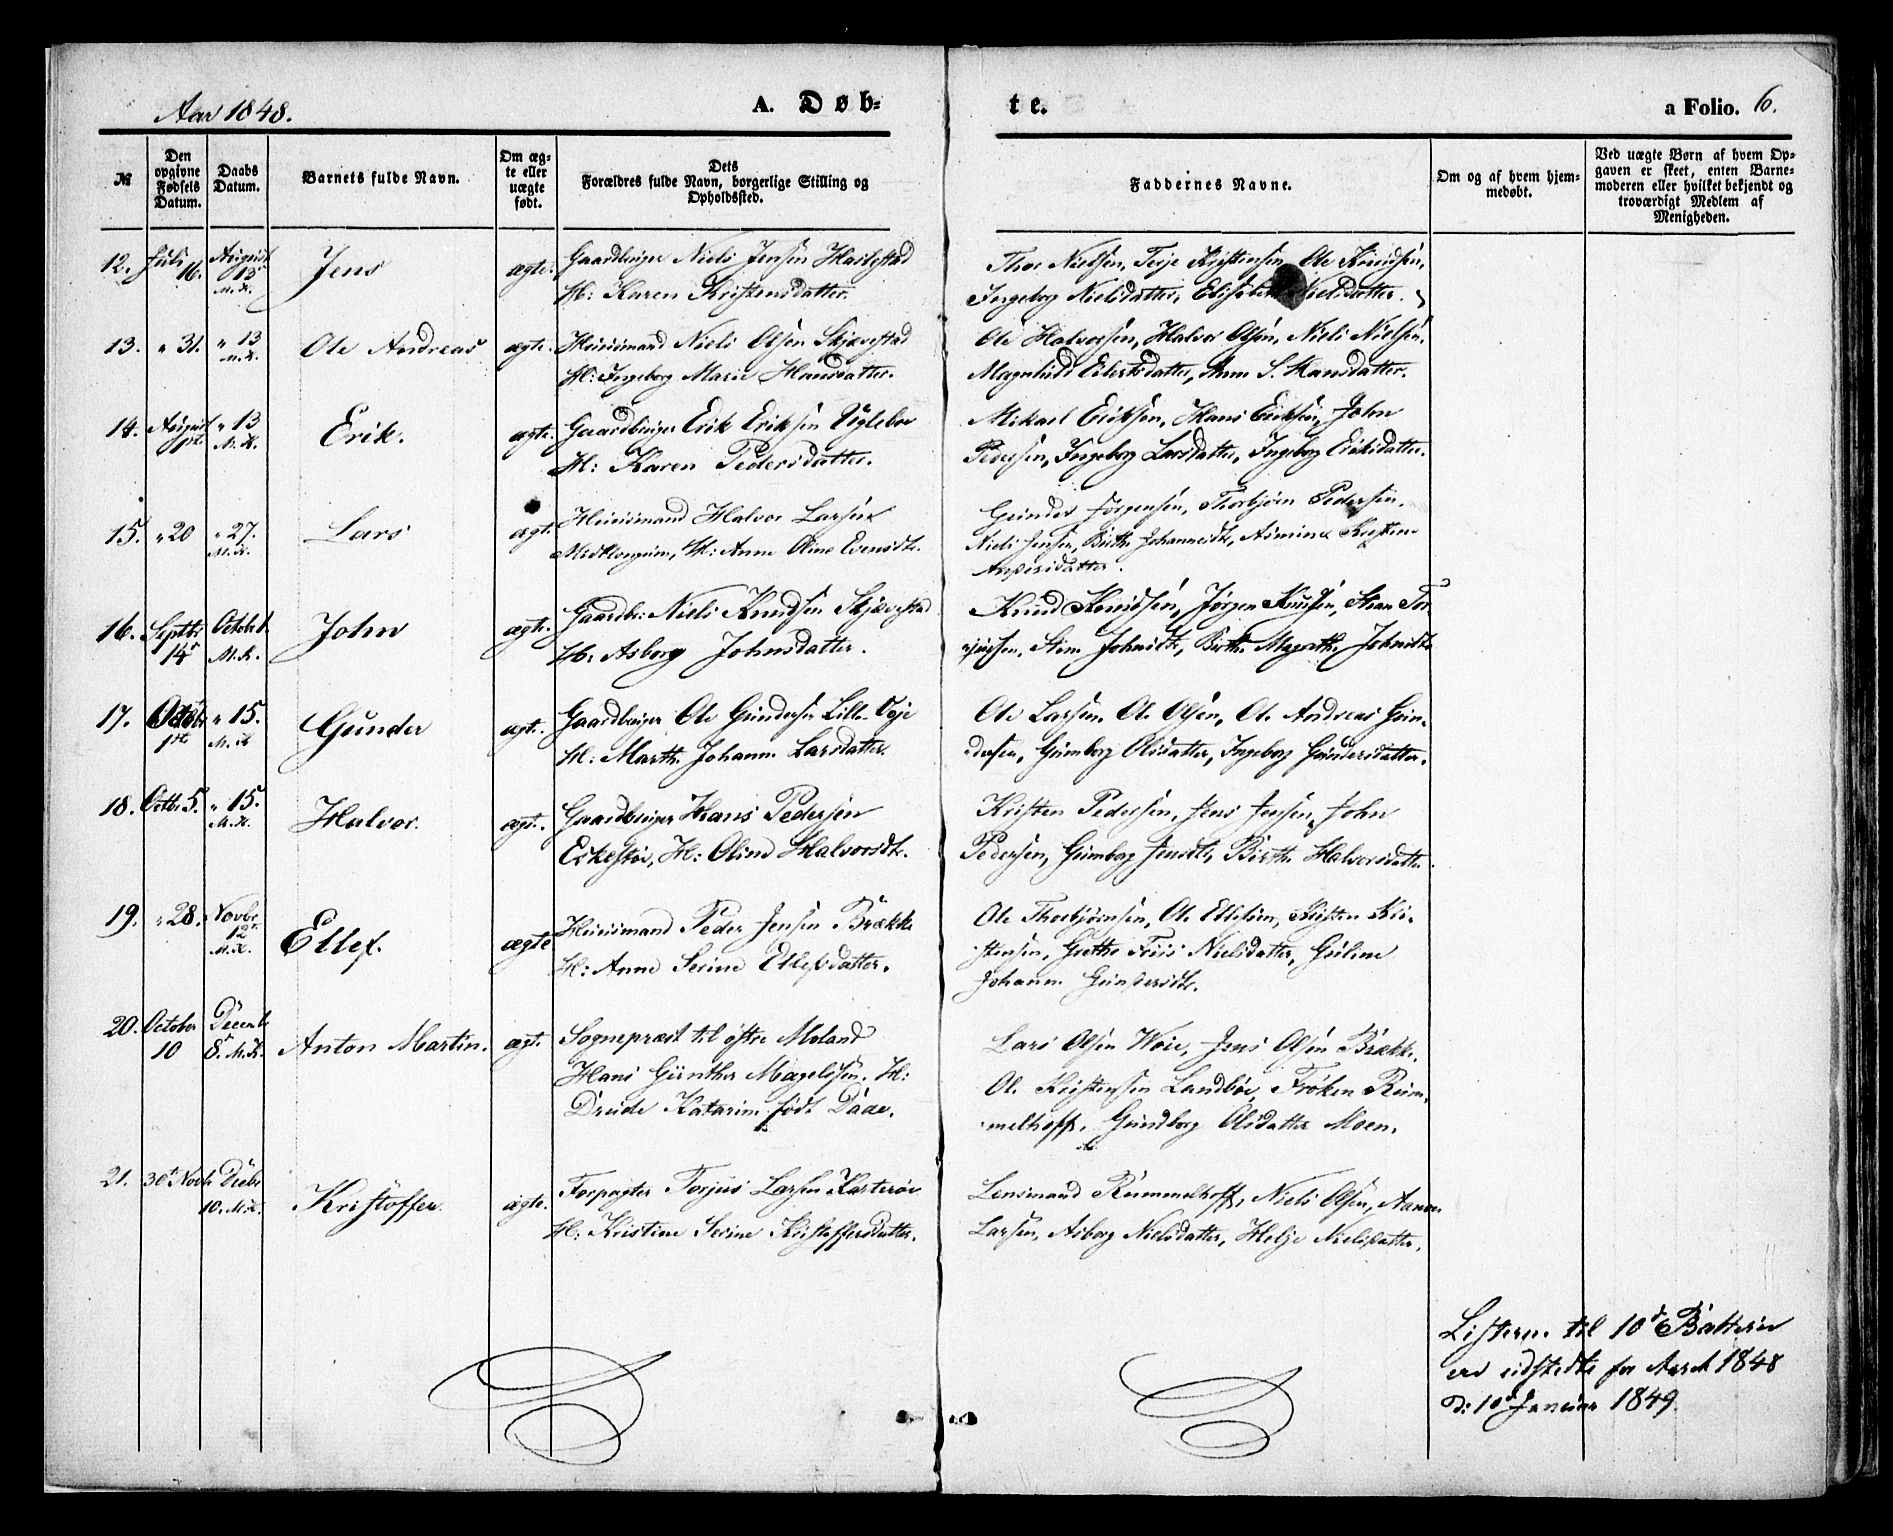 Aar 1848.
A. Døb-
te.
a Folio. 6.
№
Den opgivne Fødsels Datum.
Daabs Datum.
Barnets fulde Navn.
Om ægte eller uægte født.
Dets Forældres fulde Navn, borgerlige Stilling og Opholdssted.
Faddernes Navne.
Om og af hvem hjemmedøbt.
Ved uægte Børn af hvem Opgaven er skeet, enten Barnemoderen eller hvilket bekjendt og troværdigt Medlem af Menigheden.
12. Juli 16. August 13 M.K. Jens ægte. Gaardbruger Niels Jensen
H: Karen Kristensdatter.
Thor Nielsen, Terje Kristensen, Ole Knudsen,
Ingeborg Nielsdatter, Nielsdatter.
13. " 31. " 13 M.K. Ole Andreas ægte. Huusmand Niels Olsen Skjævestad
H: Ingeborg Marie Hansdatter.
Ole Halvorsen, Halvor Olsen, Niels Nielsen,
Datter, Anne S. Hansdatter.
14. August 1ste " 13 M.K. Erik. ægte. Gaardbruger Erik Eriksen Uglebo
H: Karen Pedersdatter.
Mikael Eriksen, Hans Eriksen, John
Pedersen, Ingeborg Larsdatter, Ingeborg Eriksdatter.
15. " 20 " 27. M.K. Lars ægte. Huusmand Halvor Larsen
H: Anne Oline Evensdtr.
Gunder Jørgensen, Thorbjørn Pedersen,
Niels Jensen, Birthe Johannesdtr,
16. Septbr 14 Octob 1. M.K. John ægte. Gaardbr: Niels Knudsen Skjævestad
H: Asborg Johnsdatter.
Knud Knudsen, Jørgen Knudsen,
Johnsdtr, Birthe Johnsdtr
17. Octbr 1ste " 15. M.K. Gunder ægte. Gaardbruger Ole Gundersen Lille
H: Marthe Johanne Larsdatter
Ole Larsen, Ole Olsen, Ole Andreas Gun-
dersen, Gunborg Olsdatter, Ingeborg Gundersdatter.
18. Octbr 5. " 15. M.K. Halvor. ægte. Gaardbruger Hans Pedersen
H: Oline Halvorsdtr.
Kristen Pedersen, Jens Jensen, John
Pedersen, Gunborg Jensdtr, Birthe Halvorsdatter
19. " 28. Novbr 12te M.K. Ellef. ægte Huusmand Peder Jensen Brække
H: Anne Serine Ellefsdatter.
Ole Thorbjørnsen, Ole Ellefsen, Kristen Kri-
stensen, Grethe Friis Nielsdatter,
Johanne
20. October 10 Decemb 8. M.K. Anton Martin. ægte. Sognepræst til østre Moland
Hans Günther Magelssen. H:
Drude Katarine født Daae.
Lars Olsen Woie, Jens Olsen Brække,
Ole Kristensen Landbøe, Frøken Rum-
melhoff, Gundborg Olsdatter Moen.
21. 30te Novb Decbr 10. M.K. Kristoffer. ægte. Forpagter Torjus Larsen
H: Kristine Serine Kristoffersdatter.
Lensmand Rummelhoff, Niels Olsen, Aanon
Larsen, Asborg Nielsdatter, Helje Nielsdatter.
Listerne til 10de
ere udstedte for Aaret 1848
d: 10de Januar 1849.